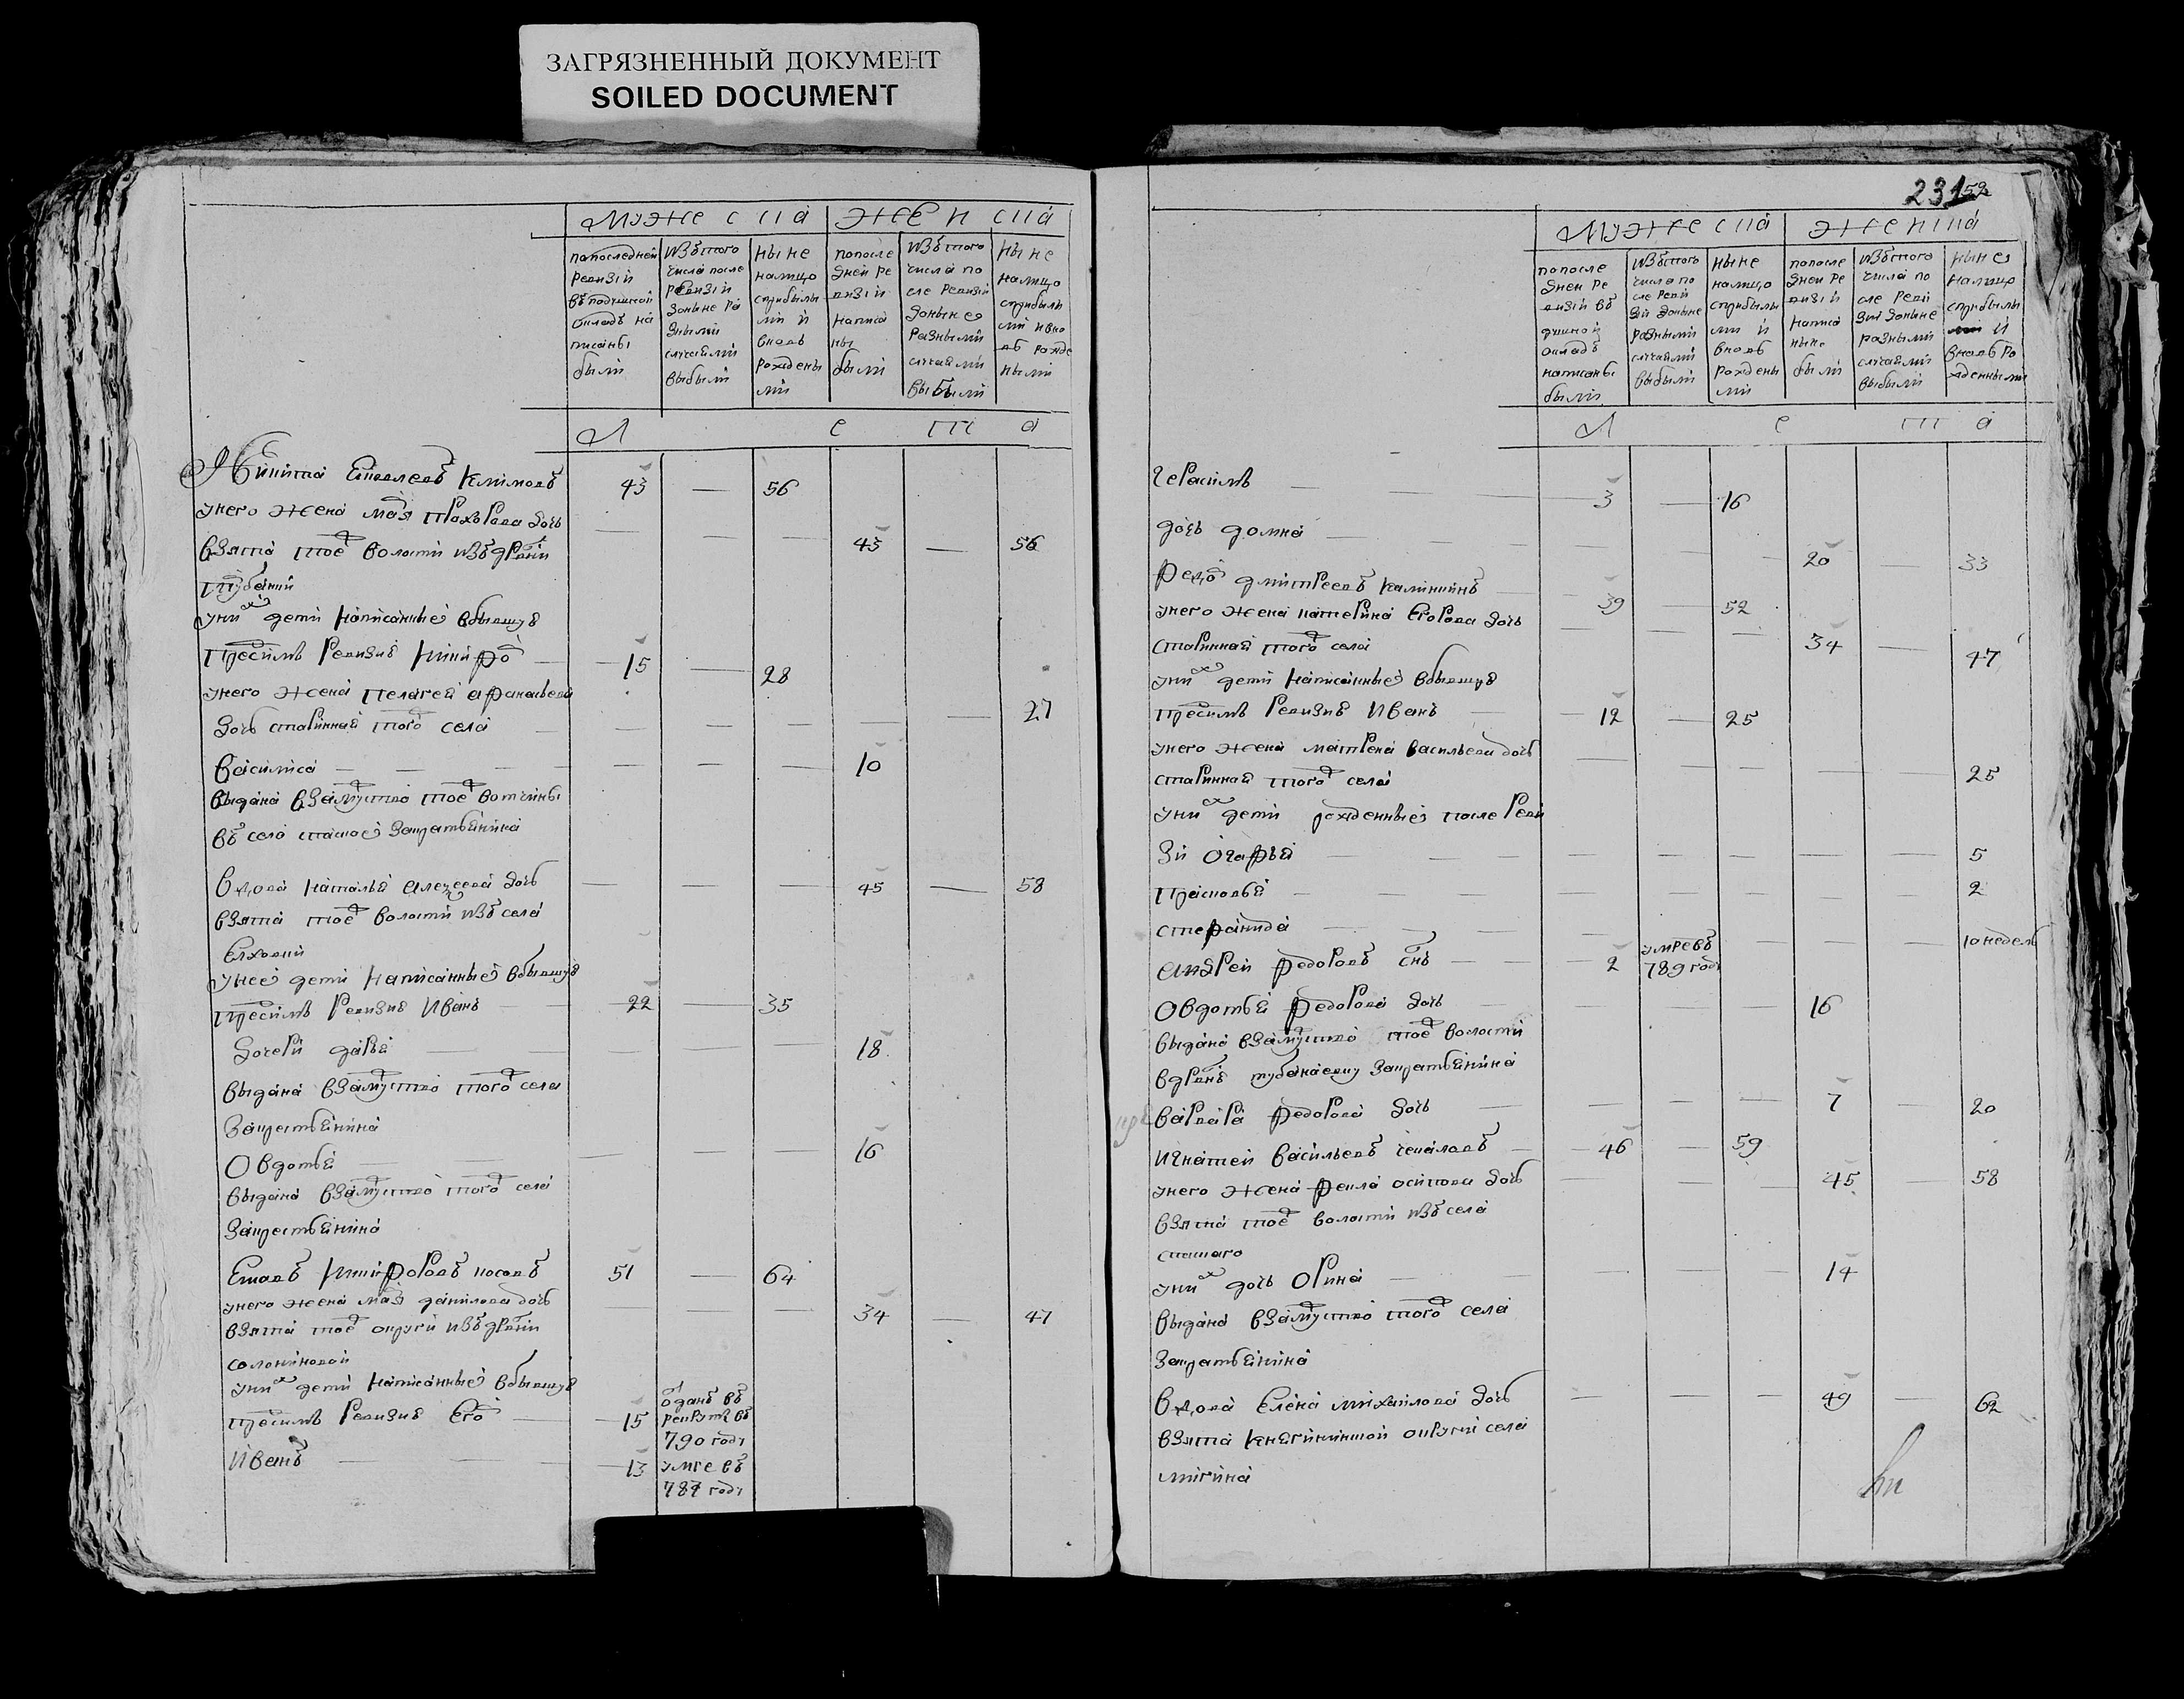 ЗАГРЯЗНЕННЫЙ ДОКУМЕНТ
SOILED DOCUMENT
Мужеска Женска
попоследней ревизіи въ подушной окладъ написаны были
изътого числа после ревизіи доныне разными случаями выбыли
ныне налицо сприбылыми и вновь рождеными
попоследней ревизіи написаны были
изътого числа после ревизіи доныне разными случаями выбыли
ныне налицо сприбылыми ивновь рождеными
Л е т а
Никита Яковлевъ Климовъ 43 — 56
унего жена мар прохорова дочь
взята тоеж волости изъ дрвни 43 — 56
тубанки
уних дети написанные вбывшую
пред симъ ревизию Никифо 15 — 28
унего жена пелагея афанасьева
дочь старинная того села — 27
василиса — 10
выдана взамуство тоеж вотчины
въ село спаское закрестьянина
вдова наталья алексеева дочь 45 — 58
взята тоеж волости изъ села
Елховки
унее дети написанные вбывшую
пред симъ ревизию Иванъ 22 — 35
дочери дарья — 18
выдана взамуство того села
закрестьянина
Овдотья — 16
выдана взамуство того села
закрестьянина
Никифоровъ носовъ 51 — 64
унего жена мар данилова дочь
взята тоеж округи изъ дрвни 34 — 47
солониновой
уних дети написанные вбывшую
пред симъ ревизию Его 15 оданъ въ рекруты въ 790 году
Иванъ — 13 умре въ 787 году
231 52
Мужеска Женска
попоследней ревизіи въ душной окладъ написаны были
изътого числа после ревизіи доныне разными случаями выбыли
ныне налицо сприбылыми и вновь рождеными
попоследней ревизіи написаны были
изътого числа после ревизіи доныне разными случаями выбыли
ныне налицо сприбылы и вновь рожденными
Л е т а
герасимъ — 3 — 16
дочь домна — 20 — 33
Федо дмитреевъ калининъ 39 — 52
унего жена катерина Егорова дочь
старинная того села 34 — 47
уних дети написанные вбывшую
пред симъ ревизию Иванъ 12 — 25
унего жена матрена васильева дочь
старинная того села — 25
уних дети рожденные после реви
зіи Огафья — 5
прасковья — 2
степанида — 10 недель
андрей федоровъ снъ 2 умре въ 789 году
Овдотья федорова дочь 16
выдана взамуство тоеж волости
вдрвню тубанаевку закрестьянина
варвара федорова дочь 7 — 20
Игнатей васильевъ 46 — 59
унего жена фекла осипова дочь 45 — 58
взята тоеж волости изъ села
спаскаго
уних дочь Орина — 14
выдана взамуство того села
закрестьянина
вдова Елена михайлова дочь 49 — 62
взята княгининской округи села